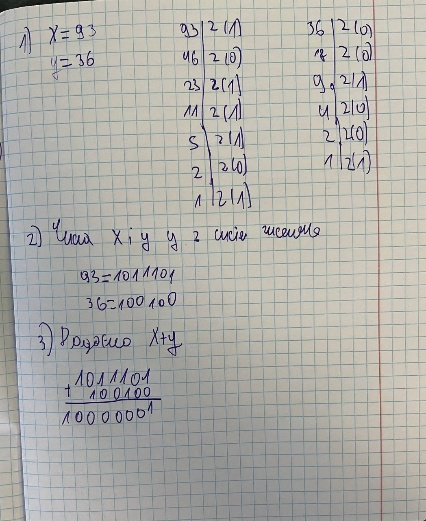 1) x=93
y=36
93 | 2 (1)
46 | 2 (0)
23 | 2 (1)
11 | 2 (1)
5 | 2 (1)
2 | 2 (0)
1 | 2 (1)
36 | 2 (0)
18 | 2 (0)
9 | 2 (1)
4 | 2 (0)
2 | 2 (0)
1 | 2 (1)
2) Числа x i y у 2 числення
93=1011101
36=100100
3) Додамо x+y
1011101
+ 100100
10000001